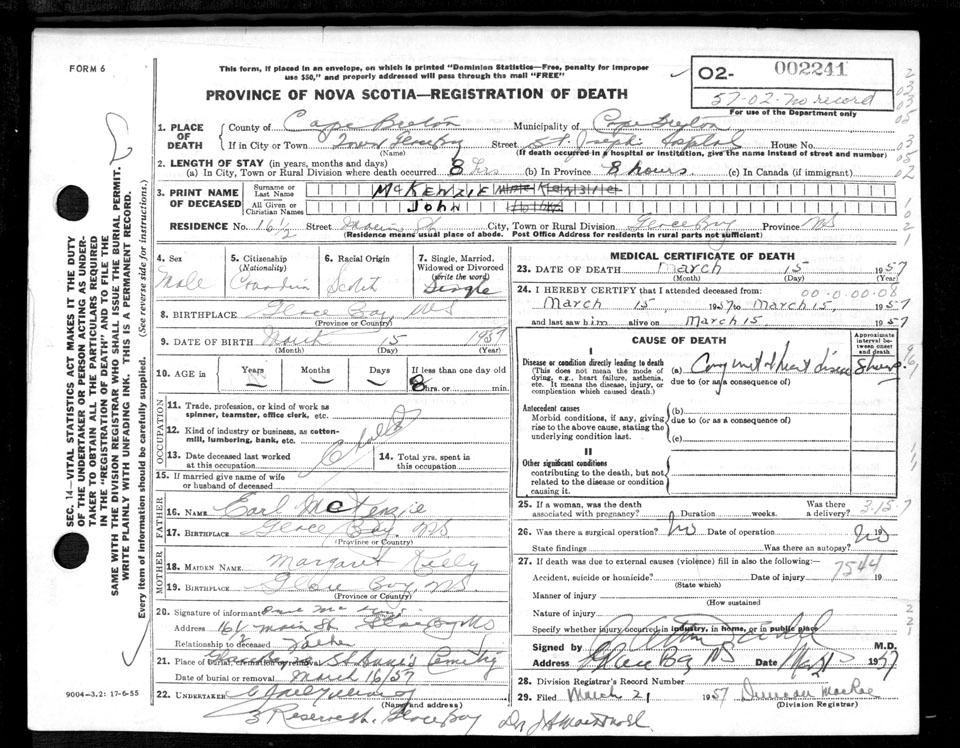 FORM 6
This form, if placed in an envelope, on which is printed "Dominion Statistics—Free, penalty for improper
use $50," and properly addressed will pass through the mail "FREE"
O2- 002241
57-02-no record
For use of the Department only
PROVINCE OF NOVA SCOTIA—REGISTRATION OF DEATH
1. PLACE OF DEATH
County of Cape Breton Municipality of Cape Breton
If in City or Town Town Glace Bay Street St. Joseph Hospital House No.
(Name) (If death occurred in a hospital or institution, give the name instead of street and number)
2. LENGTH OF STAY (in years, months and days)
(a) In City, Town or Rural Division where death occurred 8 hrs (b) In Province 8 hours. (c) In Canada (if immigrant)
3. PRINT NAME OF DECEASED
Surname or Last Name McKENZIE
All Given or Christian Names JOHN
RESIDENCE No. 16 1/2 Street Main St City, Town or Rural Division Glace Bay Province NS
(Residence means usual place of abode. Post Office Address for residents in rural parts not sufficient)
4. Sex
Male
5. Citizenship
(Nationality)
Canadian
6. Racial Origin
Scotch
7. Single, Married,
Widowed or Divorced
(Write the word)
Single
8. BIRTHPLACE Glace Bay, NS
(Province or Country)
9. DATE OF BIRTH March 15 1957
(Month) (Day) (Year)
10. AGE in
Years Months Days If less than one day old
8 hrs. or min.
OCCUPATION
11. Trade, profession, or kind of work as
spinner, teamster, office clerk, etc.
12. Kind of industry or business, as cotton-
mill, lumbering, bank, etc.
13. Date deceased last worked
at this occupation
14. Total yrs. spent in
this occupation
15. If married give name of wife
or husband of deceased
FATHER
16. NAME Earl McKenzie
17. BIRTHPLACE Glace Bay, NS
(Province or Country)
MOTHER
18. MAIDEN NAME Margaret Kelly
19. BIRTHPLACE Glace Bay NS.
(Province or Country)
20. Signature of informant
Address 16 1/2 Main St. Glace Bay NS
Relationship to deceased Father
21. Place of burial, cremation or removal Cemetery
Date of burial or removal March 16/57
22. UNDERTAKER
(Name and address)
3 Reserve St. Glace Bay
9004-3.2: 17-6-55
MEDICAL CERTIFICATE OF DEATH
23. DATE OF DEATH March 15 1957
(Month) (Day) (Year)
24. I HEREBY CERTIFY that I attended deceased from: 00-0.00-08
March 15, 1957 to March 15, 1957
and last saw him alive on March 15 1957
CAUSE OF DEATH
Approximate interval between onset and death
I
Disease or condition directly leading to death
(This does not mean the mode of
dying, e.g., heart failure, asthenia,
etc. It means the disease, injury, or
complication which caused death.)
(a) Congenital heart disease 8 hours
due to (or as a consequence of)
Antecedent causes
Morbid conditions, if any, giving
rise to the above cause, stating the
underlying condition last.
(b)
due to (or as a consequence of)
(c)
II
Other significant conditions
contributing to the death, but not
related to the disease or condition
causing it.
25. If a woman, was the death
associated with pregnancy? Duration weeks. Was there
a delivery? 3.15.7
26. Was there a surgical operation? No Date of operation 19
State findings Was there an autopsy? No
27. If death was due to external causes (violence) fill in also the following:—
Accident, suicide or homicide? Date of injury 7544 19
(State which)
Manner of injury
(How sustained
Nature of injury
Specify whether injury occurred in industry, in home, or in public place
Signed by M.D.
Address Glace Bay NS Date 1957
28. Division Registrar's Record Number
29. Filed March 21 1957 Duncan MacRae
(Division Registrar)
SEC. 14—VITAL STATISTICS ACT MAKES IT THE DUTY
OF THE UNDERTAKER OR PERSON ACTING AS UNDER-
TAKER TO OBTAIN ALL THE PARTICULARS REQUIRED
IN THE "REGISTRATION OF DEATH" AND TO FILE THE
SAME WITH THE DIVISION REGISTRAR WHO SHALL ISSUE THE BURIAL PERMIT.
WRITE PLAINLY WITH UNFADING INK. THIS IS A PERMANENT RECORD.
Every item of information should be carefully supplied. (See reverse side for instructions.)